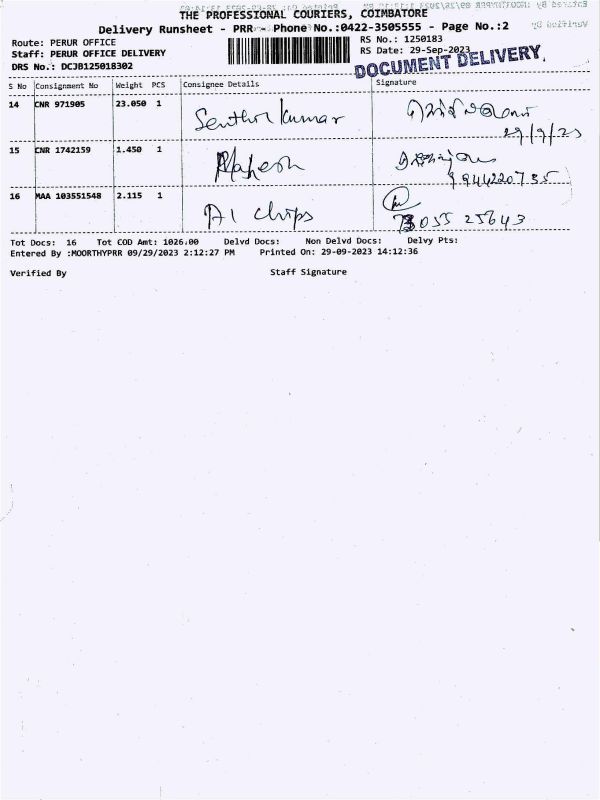 THE PROFESSIONAL COURIERS, COIMBATORE
Delivery Runsheet - PRR - Phone No.:0422-3505555 - Page No.:2
Route: PERUR OFFICE
RS No.: 1250183
Staff: PERUR OFFICE DELIVERY
RS Date: 29-Sep-2023
DRS No.: DCJB125018302
DOCUMENT DELIVERY
S No Consignment No Weight PCS Consignee Details Signature
14 CNR 971905 23.050 1 Senthil kumar
29/9/23
15 CNR 1742159 1.450 1 Mahesh
9944220735
16 MAA 103551548 2.115 1 A1 chips
73055 25643
Tot Docs: 16 Tot COD Amt: 1026.00 Delvd Docs: Non Delvd Docs: Delvy Pts:
Entered By :MOORTHYPRR 09/29/2023 2:12:27 PM Printed On: 29-09-2023 14:12:36
Verified By Staff Signature